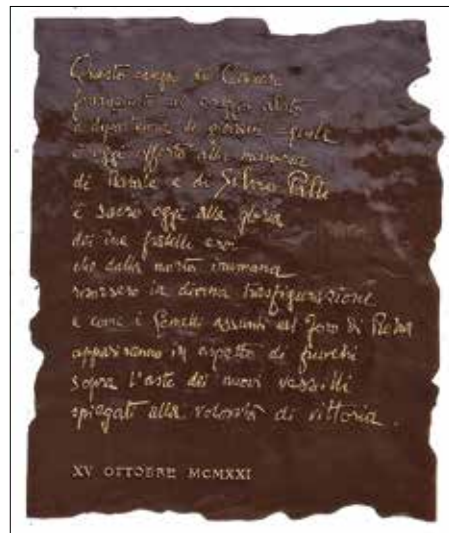 Questo
frammento
è oggi offerto alla memoria
di Natale e di Silvio Palli
è sacro oggi alla gloria
dei due fratelli eroi
che dalla morte inumana
risorsero in divina trasfigurazione
e come i Gemelli assunti nel Foro di Roma
appariranno in aspetto di fuochi
sopra l'aste dei nuovi vessilli
spiegati alla volontà di vittoria.
XV OTTOBRE MCMXXI